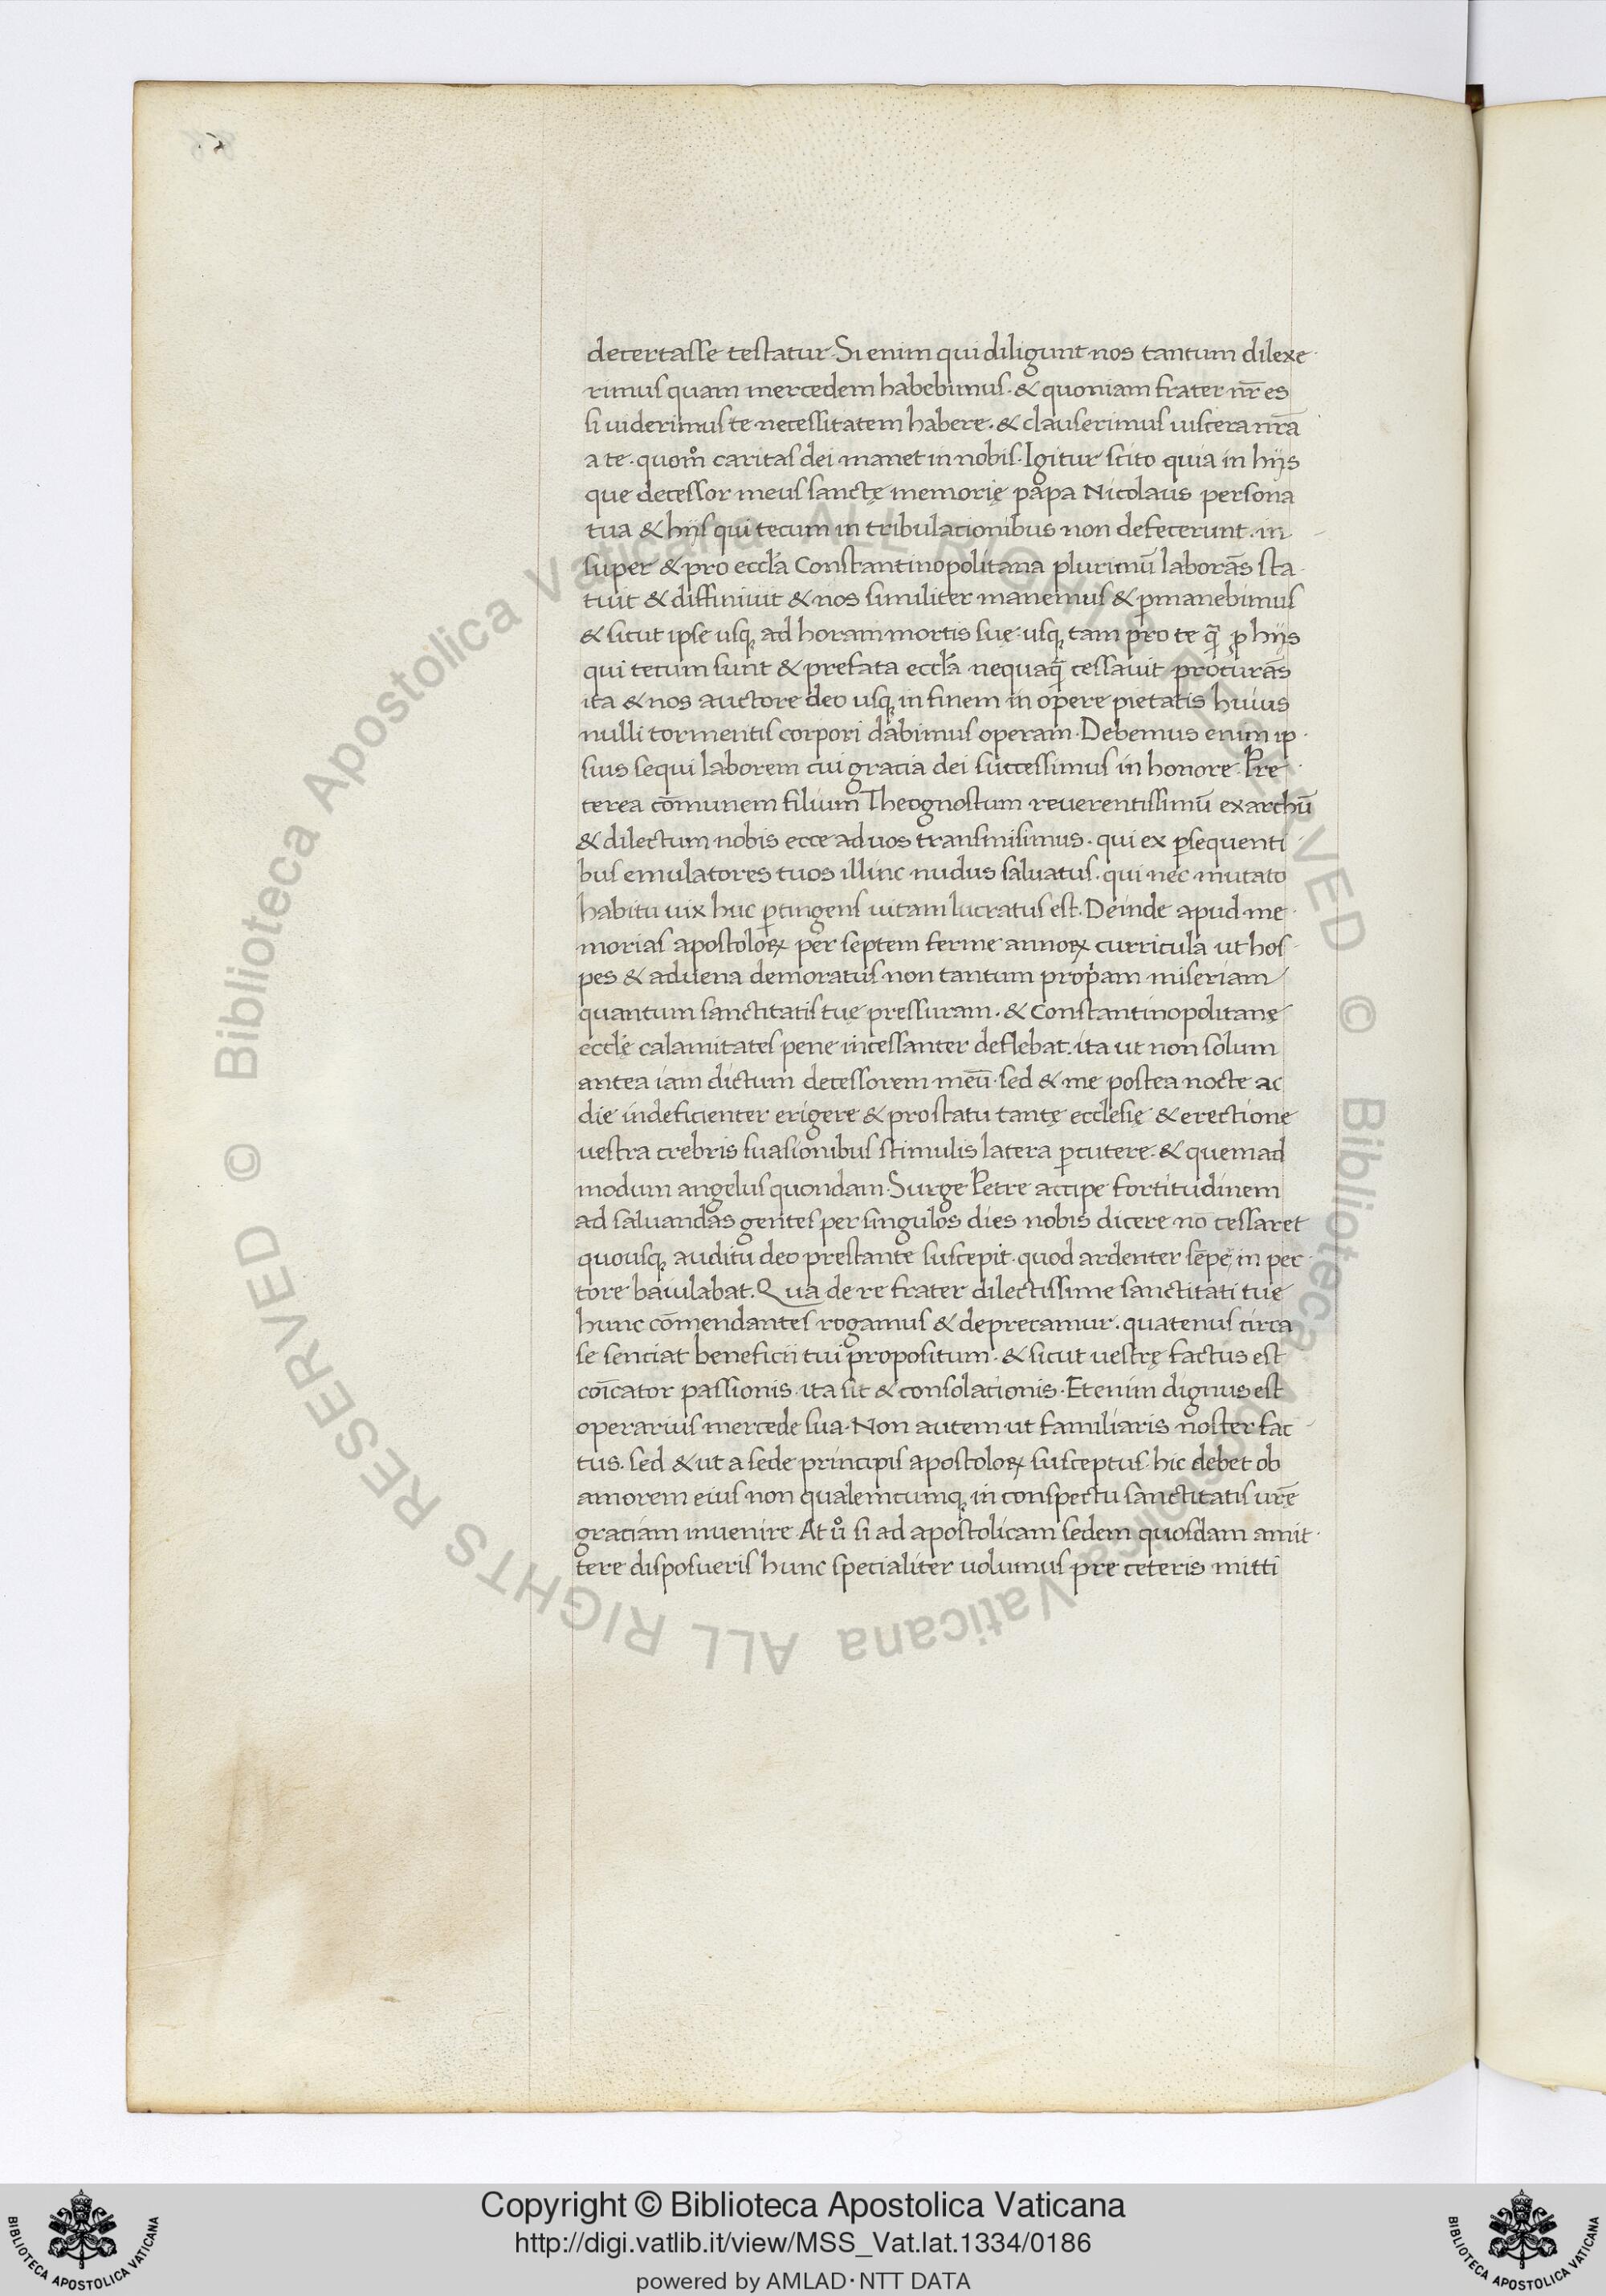 decertasse testatur. Si enim qui diligunt nos tantum dilexe
rimus quam mercedem habebimus. & quoniam frater nr̄ es
si uiderimus te necessitatem habere. & clauserimus uiscera nr̄a
a te. quom̊ caritas dei manet in nobis. Igitur scito quia in hijs
que decessor meus sanctę memorię papa Nicolaus persona
tua & hijs qui tecum in tribulacionibus non defecerunt. in
super & pro eccl̄a Constantinopolitana plurimū laborās sta
tuit & diffiniuit & nos similiter manemus & ꝑmanebimus
& sicut ipse usqꝫ ad horam mortis suę. usqꝫ tam pro te qꝫ̄ ꝓ hijs
qui tecum sunt & prefata eccl̄a nequaqꝫ̄ cessauit procurās
ita & nos auctore deo usqꝫ in finem in opere pietatis huius
nulli tormentis corpori dabimus operam. Debemus enim ip
sius sequi laborem cui gracia dei successimus in honore. Pre
terea cōmunem filium Theognostum reuerentissimū exarchū
& dilectum nobis ecce ad uos transmisimus. qui ex ꝑsequenti
bus emulatores tuos illinc nudus saluatus. qui nec mutato
habitu uix huc ꝑtingens uitam lucratus est. Deinde apud me
morias apostoloꝝ per septem ferme annoꝝ curricula ut hos
pes & aduena demoratus non tantum propͥam miseriam
quantum sanctitatis tuę pressuram. & Constantinopolitanę
eccl̄ę calamitates pene incessanter deflebat. ita ut non solum
antea iam dictum decessorem meū. sed & me postea nocte ac
die indeficienter erigere & pro statu tantę ecclesię & erectione
uestra crebris suasionibus stimulis latera ꝑcutere. & quemad
modum angelus quondam. Surge Petre accipe fortitudinem
ad saluandas gentes per singulos dies nobis dicere nō cessaret
quousqꝫ auditū deo prestante suscepit. quod ardenter sēpe in pec
tore baiulabat. Qua de re frater dilectissime sanctitati tue
hunc cōmendantes rogamus & deprecamur. quatenus circa
se senciat beneficii tui propositum. & sicut uestrę factus est
coīcator passionis. ita sit & consolacionis. Etenim dignus est
operarius mercede sua. Non autem ut familiaris noster fac
tus. sed & ut a sede principis apostoloꝝ susceptus. hic debet ob
amorem eius non qualemcumqꝫ in conspectu sanctitatis ur̄ę
graciam inuenire. At ů si ad apostolicam sedem quosdam amit
tere disposueris hunc specialiter uolumus pre ceteris mitti
© Biblioteca Apostolica Vaticana ALL RIGHTS RESERVED © Biblioteca Apostolica Vaticana ALL RIGHTS RESERVED
BIBLIOTECA APOSTOLICA VATICANA
Copyright © Biblioteca Apostolica Vaticana
http://digi.vatlib.it/view/MSS_Vat.lat.1334/0186
powered by AMLAD·NTT DATA
BIBLIOTECA APOSTOLICA VATICANA